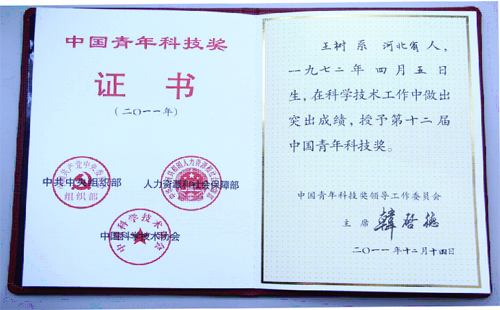 中国青年科技奖
证书
（二〇一一年）
中共中央组织部
组织部
人力资源和社会保障部
中国科学技术协会
王树 系 河北省人，
一九七二年 四月五日
生，在科学技术工作中做出
突出成绩，授予第十二届
中国青年科技奖。
中国青年科技奖领导工作委员会
主席 韩启德
二〇一一年十二月十四日